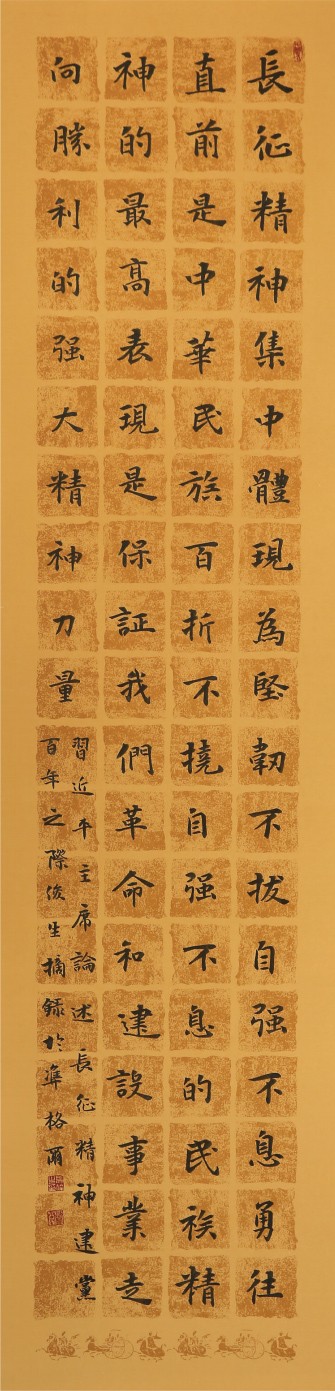 長征精神集中體現為堅韌不拔自强不息勇往
直前是中華民族百折不撓自强不息的民族精
神的最高表現是保証我們革命和建設事業走
向勝利的强大精神力量
習近平主席論述長征精神建黨
百年之際俊生摘録於準格爾